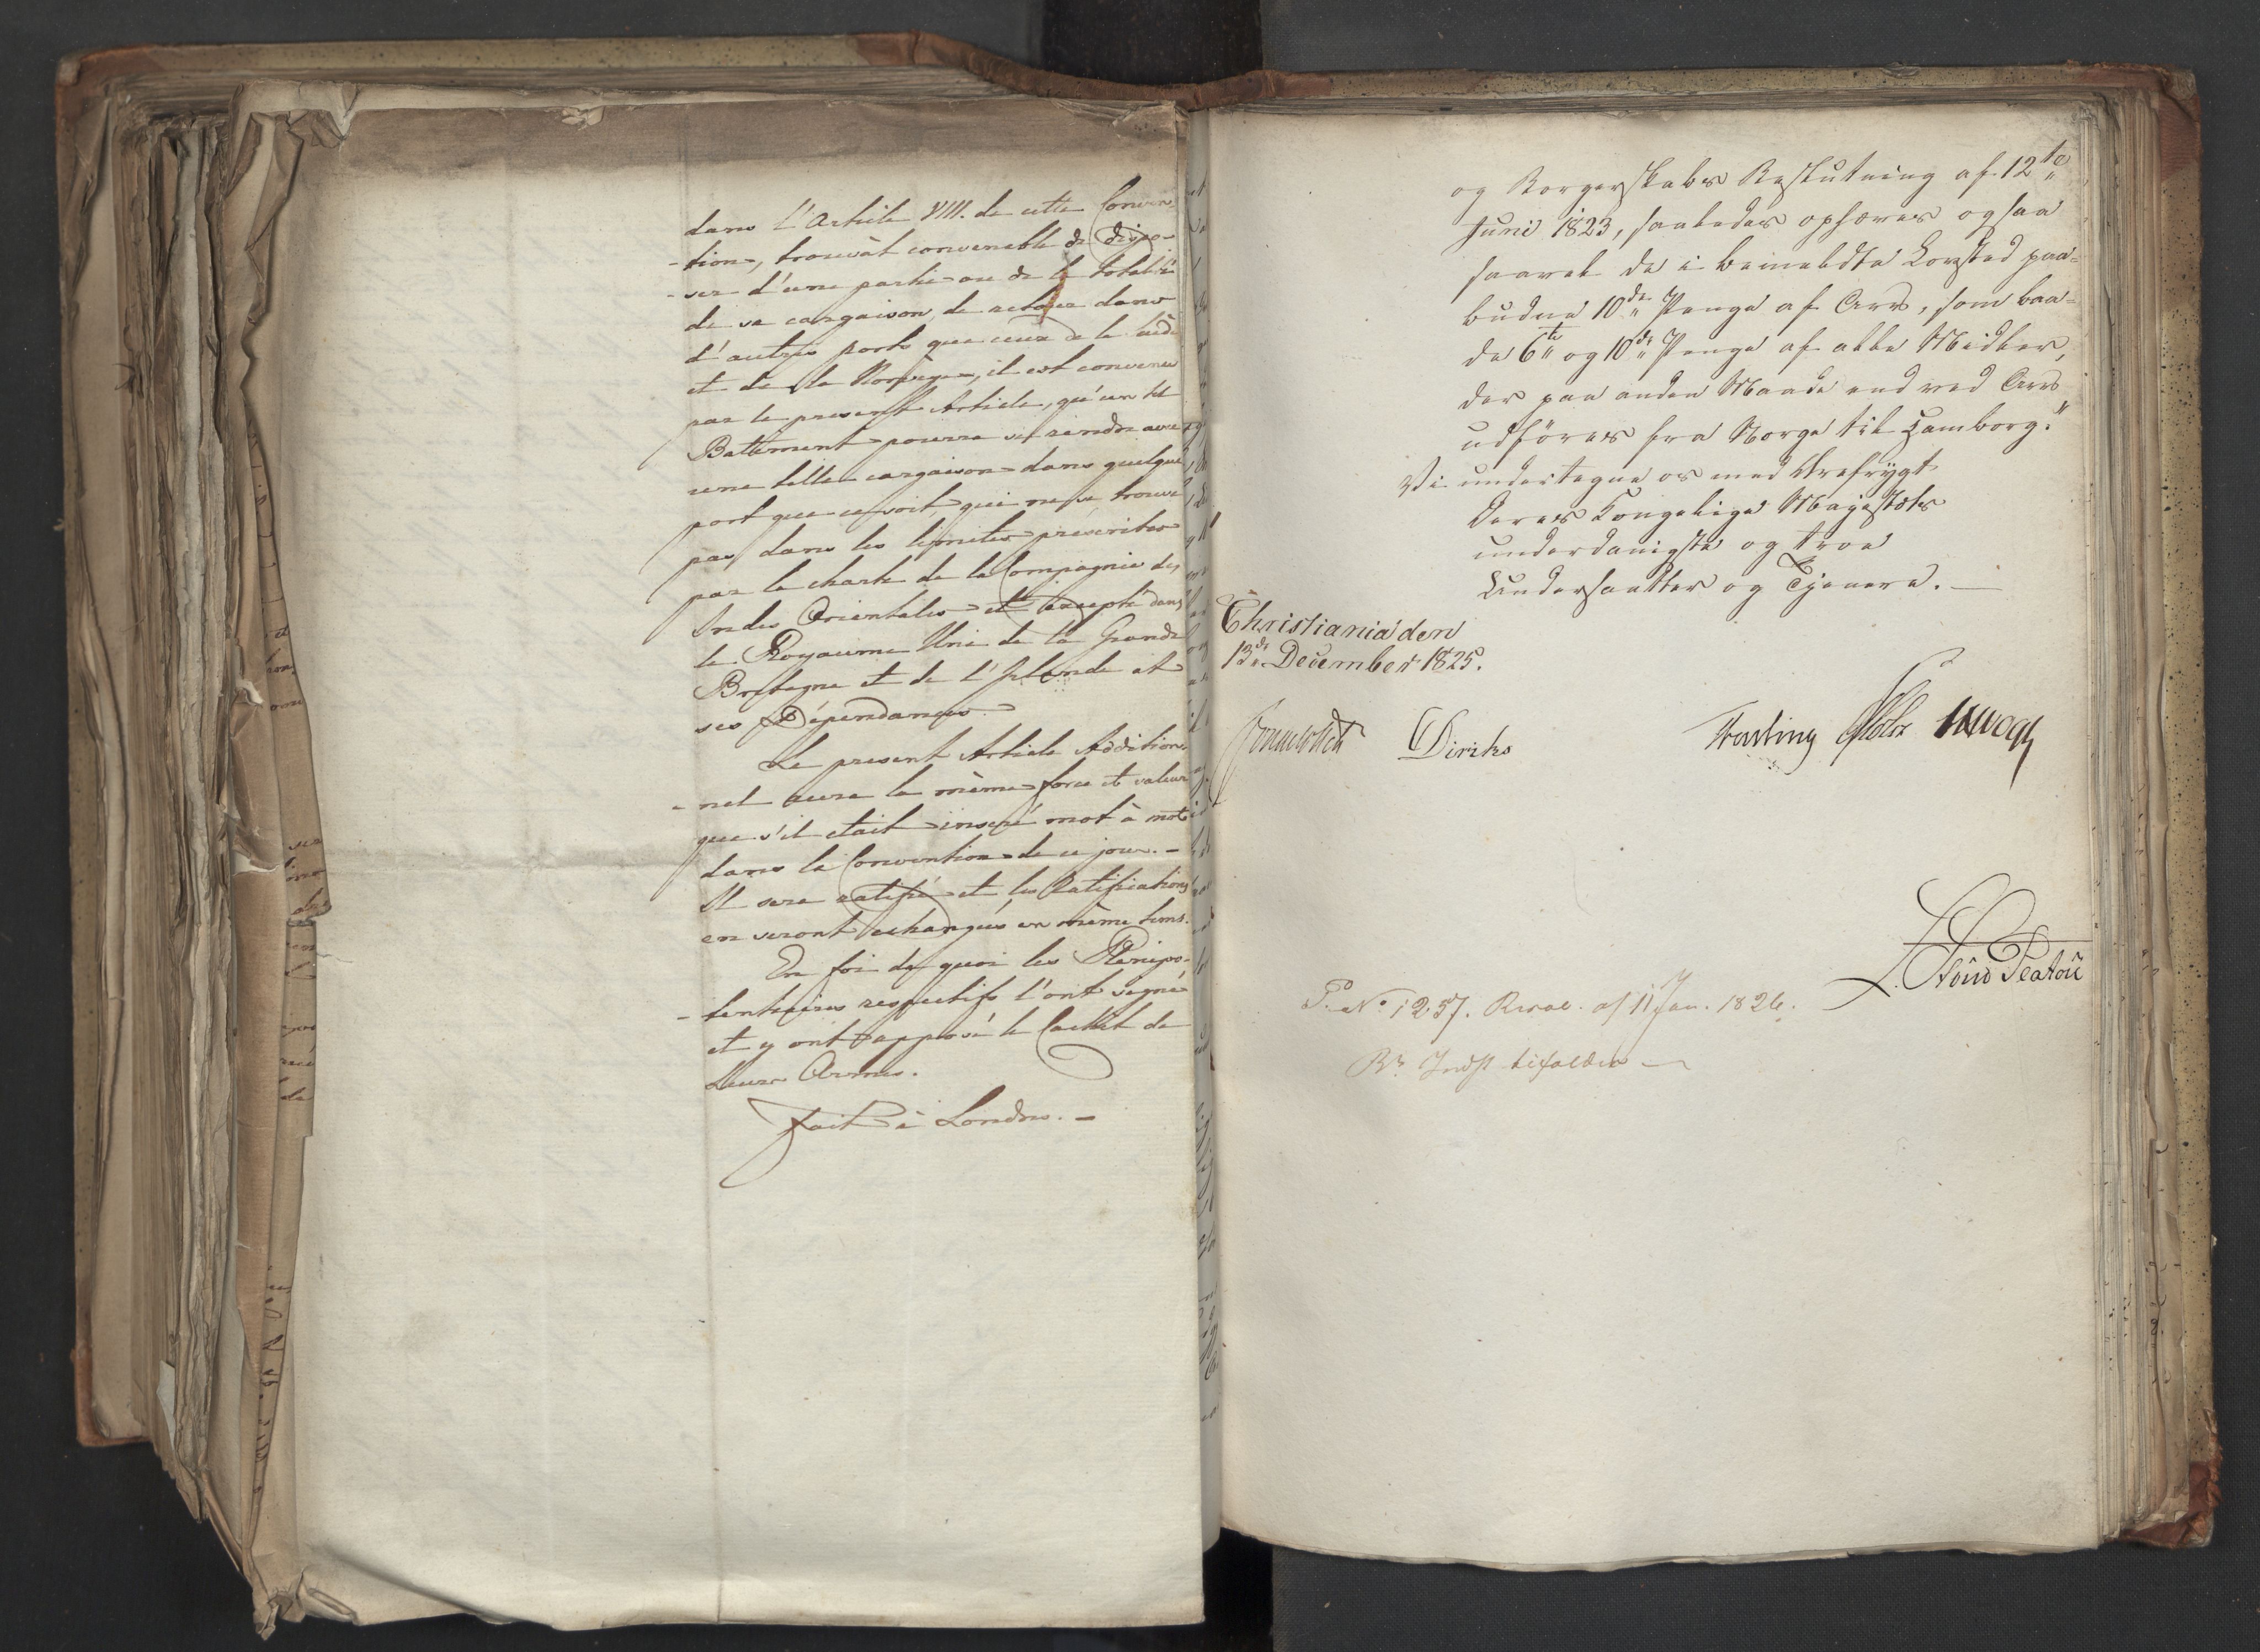 dans l'Article VIII. de cette Conven-
-tion, trouvât convenable de dispo-
-ser d'une partie ou de la totalité
de sa cargaison de retour dans
d'autres ports que ceux de la Suède
et de la Norvège, il est convenu
par le present Article, qu'un tel
Batiment pourra se rendre avec
une telle cargaison dans quelque
port que ce soit, qui ne se trouve
pas dans les limites prescrites
par la charte de la Compagnie des
Indes Orientales et excepté dans
le Royaume Uni de la Grande
Bretagne et de l'Irlande et
ses Dépendances.
Le present Article Addition-
-nel aura la même force et valeur
que s'il etait inseré mot à mot
dans la Convention de ce jour. -
Il sera ratifié et les Ratifications
en seront echangées en même tems.
En foi de quoi les Plenipo-
-tentiaires respectifs l'ont signé
et y ont apposé le Cachet de
Leurs Armes.
Fait à Londres. -
og Borgerskabs Beslutning af 12te
Juni 1823, saaledes ophæves ogsaa
saavel de i bemeldte Lovsted paa=
budne 10de Penge af Arv, som baa=
de 6te og 10de Penge af alle Midler,
der paa anden Maade end ved Arv
udföres fra Norge til Hamborg."
Vi undertegne os med Ærefrygt
Deres Kongelige Majestæts
underdanigste og troe
Undersaatter og Tjenere. —
Christiania den
13de December 1825.
Sommerfeldt Diriks Treschow Holst
P. No 1257. Resol. af 11 Jan. 1826.
Rs Indst bifaldes —